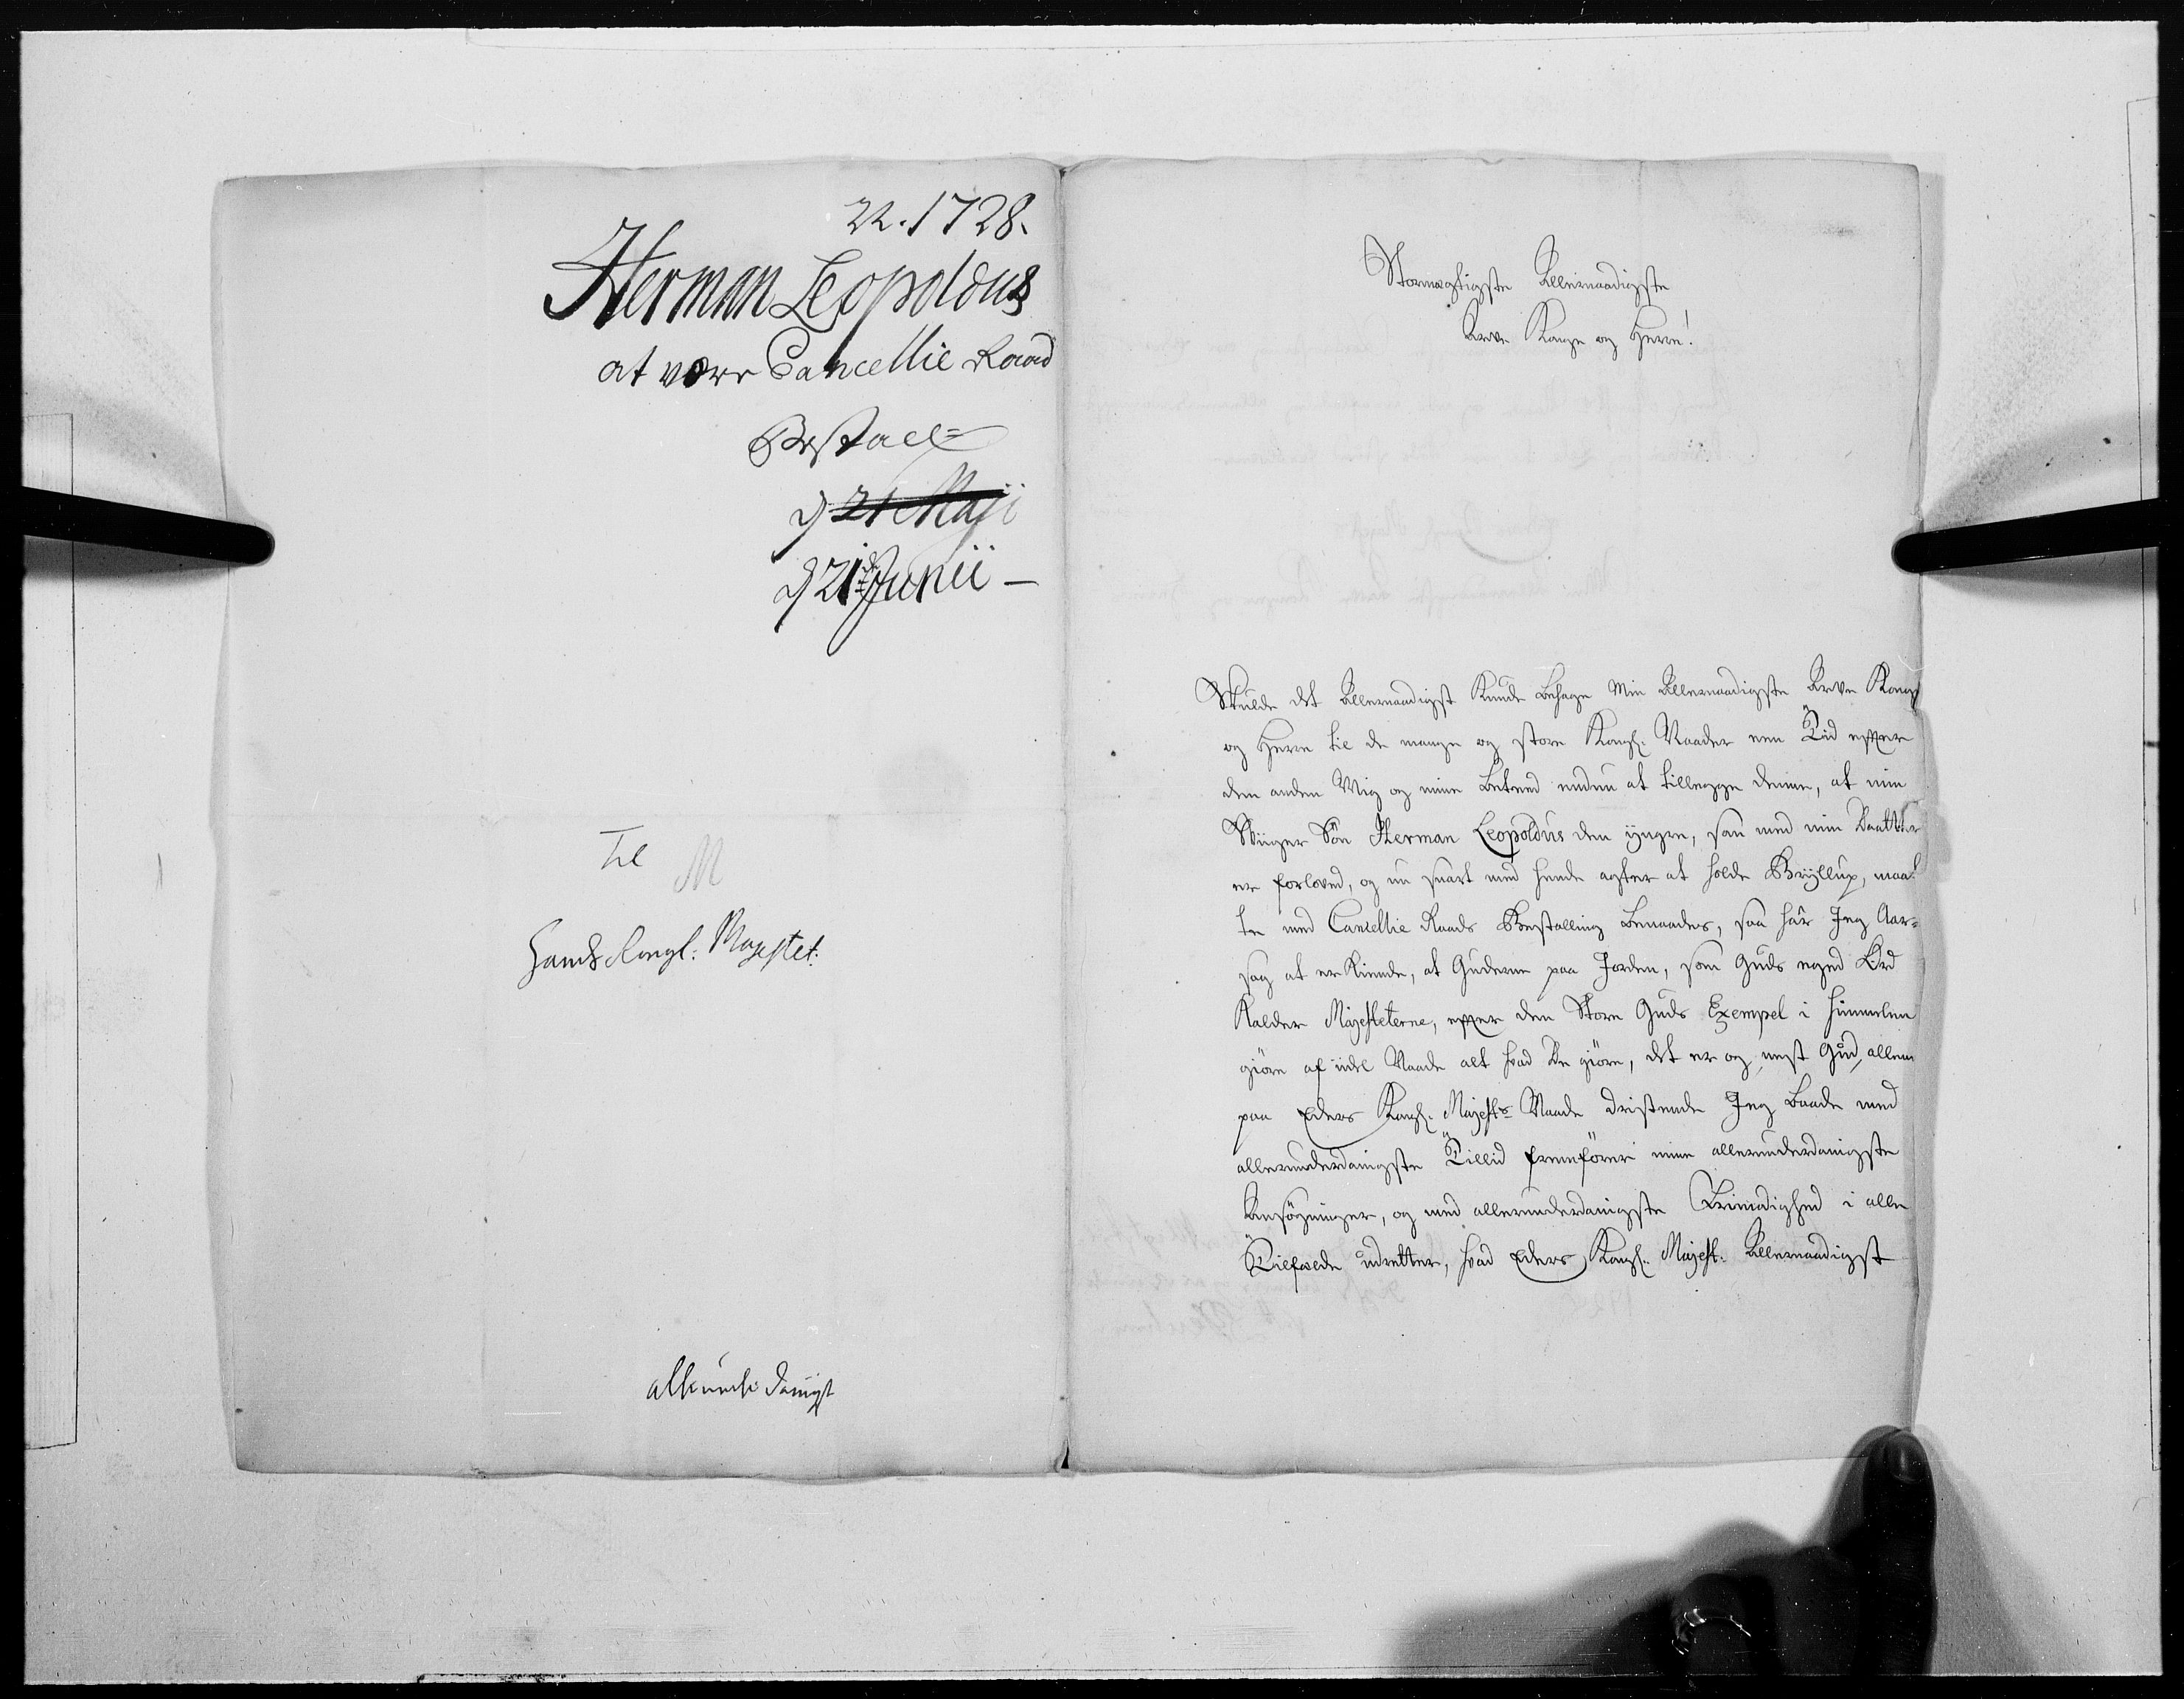 22. 1728.
Herman Leopoldus
at være Cancellie Raad
Bestall=
d 21 Maji
d 21de Junii –
Til
M
Hands Kongl: Majestet:
allerunderdanigst
Stormægtigste Allernaadigste
Arve Konge og Herre!
Skulde det Allernaadigst kunde behage Min Allernaadigste Arve Konge
og Herre til de mange og store Kongl. Naader een Tid effter
den anden Mig og mine beteed endnu at tillegge denne, at min
Sviger Søn Herman Leopoldus den yngre, som med min Daatter
er forloved, og nu snart med hende agter at holde Bryllup, maat-
te med Cancellie Raads Bestalling benaades, saa har Jeg Aar=
sag at erkiende, at Guderne paa Jorden, som Guds eged Ord
kalder Majesteterne, effter den Store Guds Exempel i Himmelen
giøre af idel Naade alt hvad De giøre, det er og, nest Gud, alleene
paa Eders Kongl. Majesta Naade dristende Jeg baade med
allerunderdanigste Tillid fremfører mine allerunderdanigste
Ansøgninger, og med allerunderdanigste Frimodighed i alle
Tilfælde udretter, hvad Eders Kongl. Majest. Allernaadigst